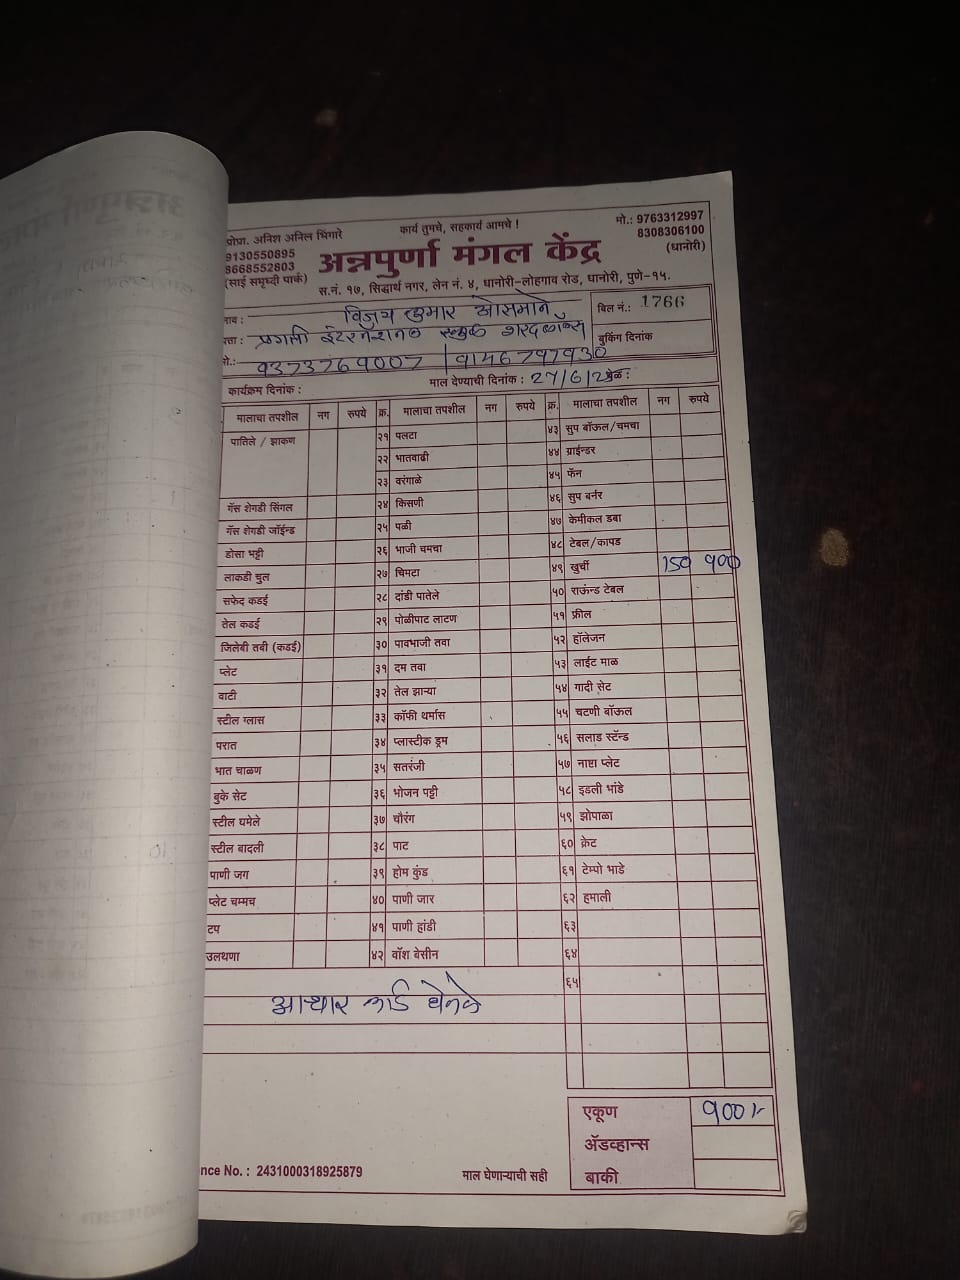 कार्य तुमचे, सहकार्य आमचे !
प्रोप्रा. अनिश अनिल भिंगारे
9130550895
8668552803
(साई समृध्दी पार्क)
अन्नपुर्णा मंगल केंद्र
मो.: 9763312997
8308306100
(धानोरी)
स.नं. १७, सिद्धार्थ नगर, लेन नं. ४, धानोरी-लोहगाव रोड, धानोरी, पुणे-१५.
नाव : विजय कुमार ओसमाने
बिल नं.: 1766
त्ता : प्रगती इंटरनॅशनल स्कूल शरद
बुकिंग दिनांक
मो.: 9373769007 | 9146797930
कार्यक्रम दिनांक : माल देण्याची दिनांक : 27/6/25 वेळ :
मालाचा तपशील नग रुपये क्र. मालाचा तपशील नग रुपये क्र. मालाचा तपशील नग रुपये
पातिले / झाकण २१ पलटा ४३ सुप बॉऊल/चमचा
२२ भातवाढी ४४ ग्राईन्डर
२३ वरंगाळे ४५ फॅन
गॅस शेगडी सिंगल २४ किसणी ४६ सुप बर्नर
गॅस शेगडी जॉईन्ड २५ पळी ४७ केमीकल डबा
डोसा भट्टी २६ भाजी चमचा ४८ टेबल/कापड
लाकडी चुल २७ चिमटा ४९ खुर्ची 150 900
सफेद कडई २८ दांडी पातेले ५० राऊंन्ड टेबल
तेल कडई २९ पोळीपाट लाटण ५१ फ्रील
जिलेबी तवी (कडई) ३० पावभाजी तवा ५२ हॉलेजन
प्लेट ३१ दम तवा ५३ लाईट माळ
वाटी ३२ तेल झाऱ्या ५४ गादी सेट
स्टील ग्लास ३३ कॉफी थर्मास ५५ चटणी बॉऊल
परात ३४ प्लास्टीक ड्रम ५६ सलाड स्टॅन्ड
भात चाळण ३५ सतरंजी ५७ नाष्टा प्लेट
बुके सेट ३६ भोजन पट्टी ५८ इडली भांडे
स्टील घमेले ३७ चौरंग ५९ झोपाळा
स्टील बादली ३८ पाट ६० क्रेट
पाणी जग ३९ होम कुंड ६१ टेम्पो भाडे
प्लेट चम्मच ४० पाणी जार ६२ हमाली
टप ४१ पाणी हांडी ६३
उलथणा ४२ वॉश बेसीन ६४
६५
आधार कार्ड घेतले
एकूण 900/-
ॲडव्हान्स
बाकी
nce No. : 2431000318925879 माल घेणाऱ्याची सही